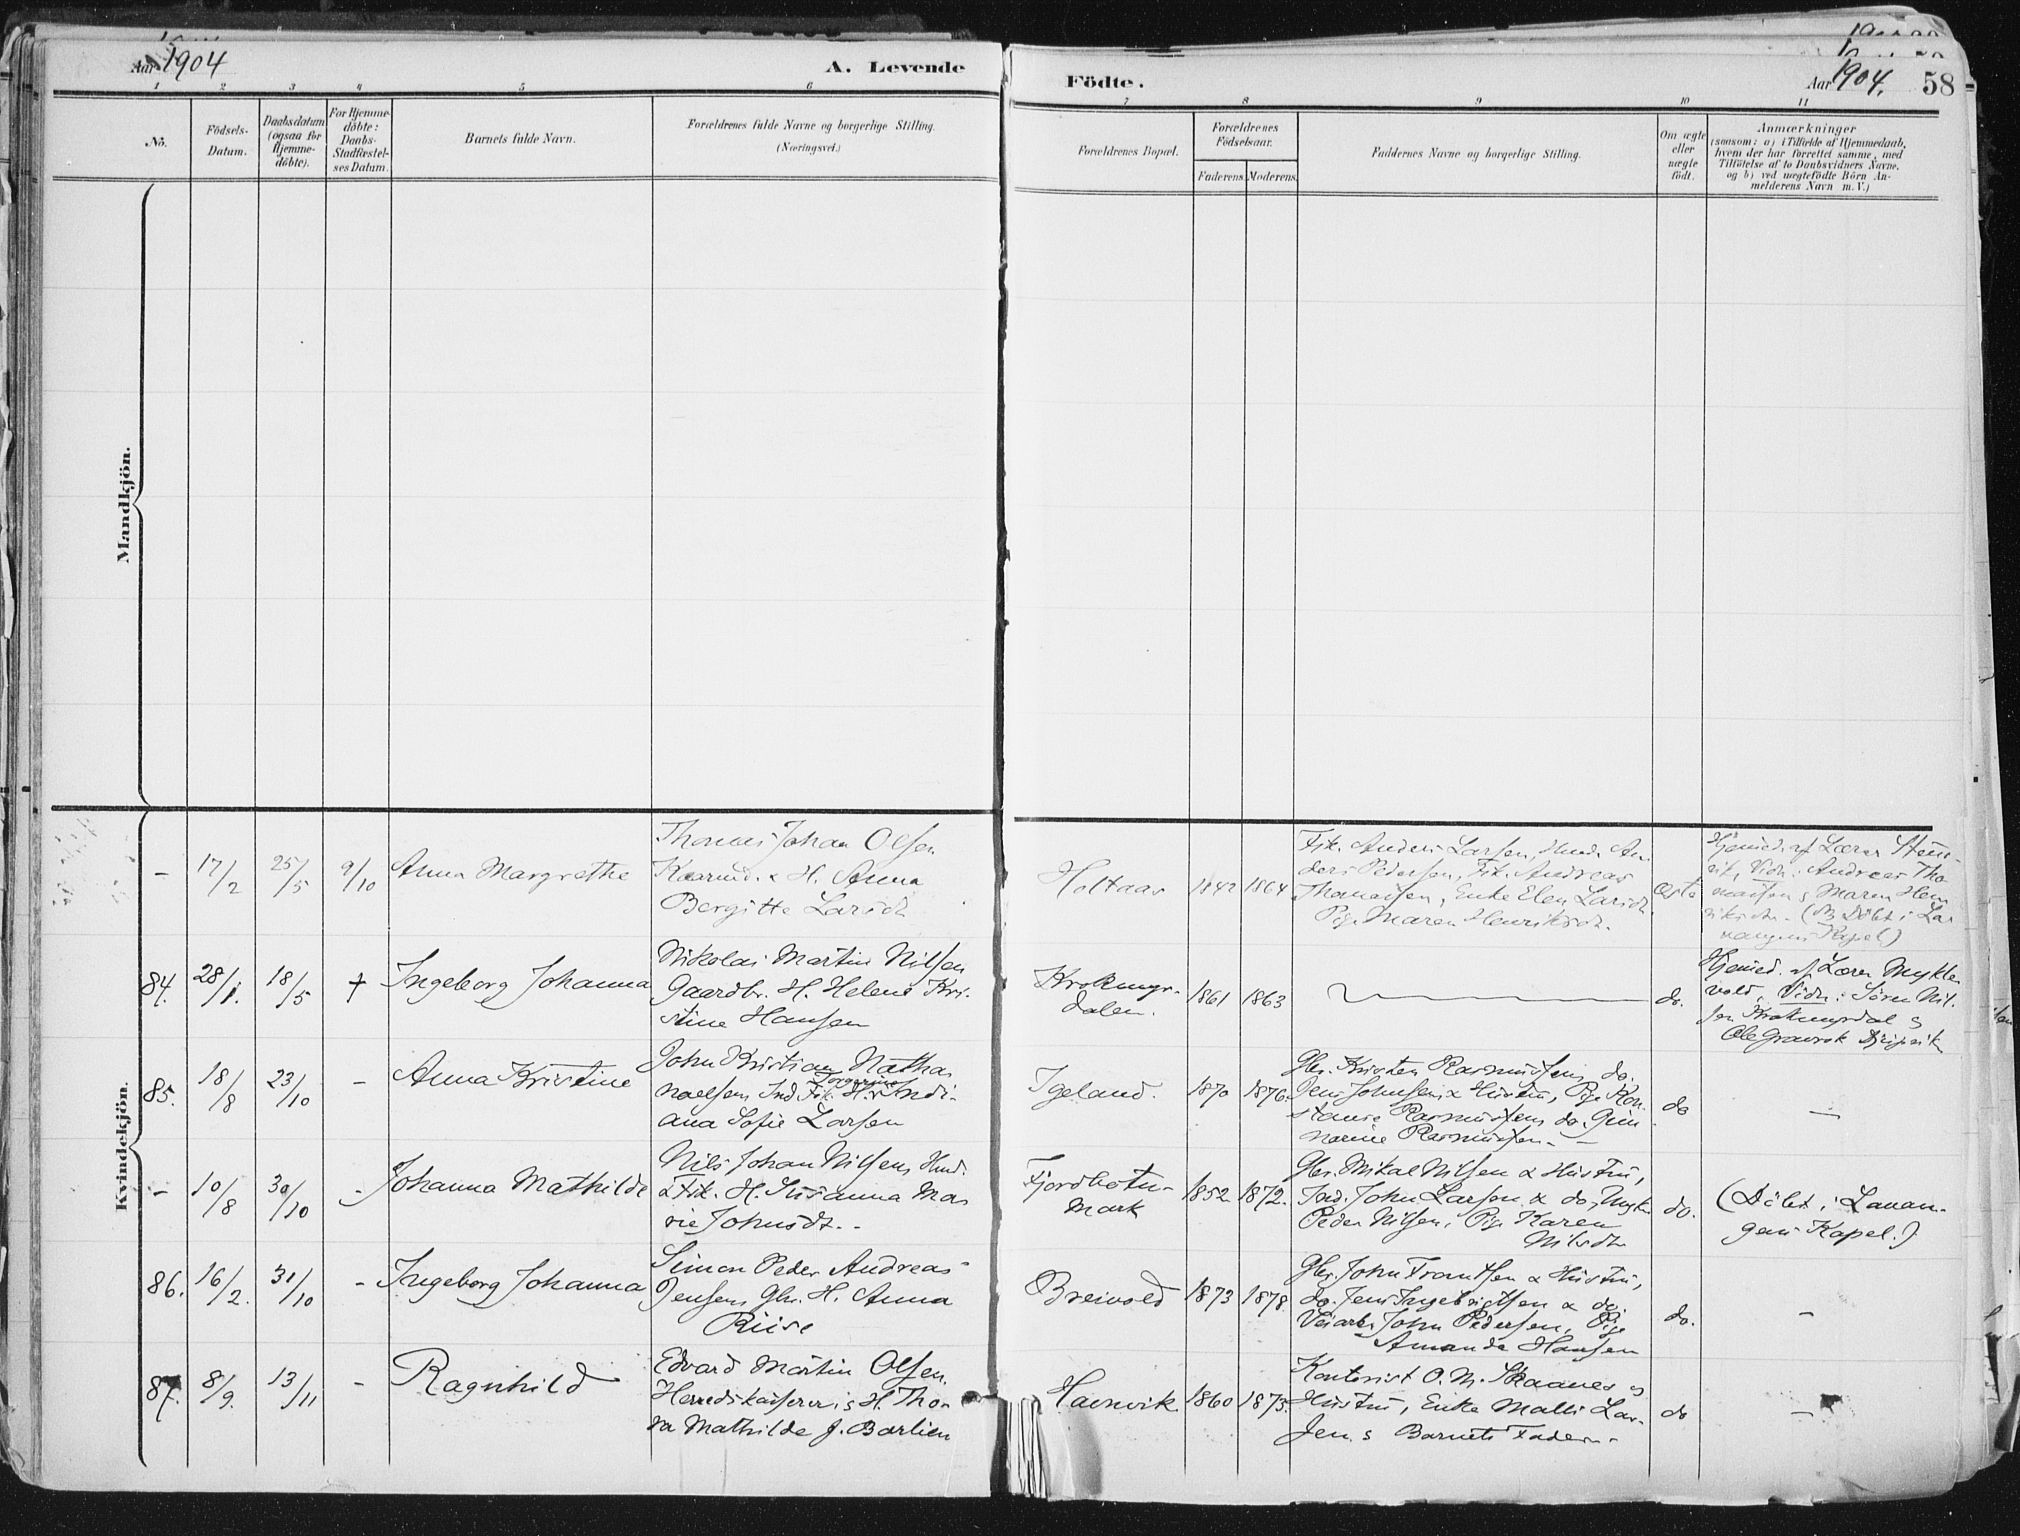 Aar 1904
A. Levende
Födte.
Aar 1904.
58
1 2 3 4 5 6 7 8 9 10 11
No.
Födsels-
Datum.
Daabsdatum
(ogsaa for
Hjemme-
döbte).
For Hjemme-
döbte:
Daabs-
Stadfæstel-
ses Datum.
Barnets fulde Navn.
Forældrenes fulde Navne og borgerlige Stilling.
(Næringsvei.)
Forældrenes Bopæl.
Forældrenes
Födselsaar.
Faderens. Moderens.
Faddernes Navne og borgerlige Stilling.
Om ægte
eller
uægte
født.
Anmærkninger
(saasom: a) i Tilfælde af Hjemmedaab,
hvem der har forrettet samme, med
Tilföielse af to Daabsvidners Navne,
og b) ved uægtefödte Börn An-
melderens Navn m. V.)
Mandkjön.
Kvindekjön.
-
17/2
25/5
9/10
Anna Margrethe
Thomas Johan Olsen
& H. Anna
Bergitte Larsdt
Holtaas
1842
1864
Fsk. Anders Larsen, An-
ders Pedersen, Fsk. Andreas
Thomassen, Enke Elen Larsdt.
Pige Maren Henriksdt.
ægte
Hjemmed. af Lærer
Vidn: Andreas Tho-
massen & Maren Hen-
riksdtr. (Döbt i La-
vangens Kapel)
84.
28/1.
18/5
+
Ingeborg Johanna
Nikolai Martin Nilsen
Gaardbr. H. Helene Kri-
stine Hansen
Krokmyr-
dalen.
1861
1863
do.
Hjemmed. af Lærer Mykle-
vold, Vidn: Sören Nil-
sen Krokmyrdal &
85.
18/8
23/10
-
Anna Kristine
John Kristian Natha-
naelsen Ind. Fsk. H.
ana Sofie Larsen
Igeland.
1870
1876.
Gbr. Kristen Rasmussen, do.
Jens Johnsen & Hustru, Pige Kon-
stanse Rasmussen, do. Gun-
narine Rasmussen. -
do
-
-
10/8
30/10
-
Johanna Mathilde
Nils Johan Nilsen,
& Fsk. H. Susanna Ma-
rie Johnsdt. -
Fjordbotn-
mark
1852
1872.
Gbr. Mikal Nilsen & Hustru,
Ind. John Larsen & do, Ungk.
Peder Nilsen, Pige Karen
Nilsdtr
do.
(Döbt i Lavan-
gens Kapel.)
86.
16/2.
31/10
-
Ingeborg Johanna
Simon Peder Andreas
Jensen Gbr. H. Anna
Riise
Breivold
1873
1878.
Gbr. John Frantsen & Hustru,
do. Jens Ingebrigtsen & do.
Veiarb. John Pedersen, Pige
Amanda Hansen
do.
-
87.
8/9.
13/11
-
Ragnhild
Edvard Martin Olsen.
Herredskasserer & H. Tho-
ra Mathilde J. Barlien
Havnvik.
1860
1873.
Kontorist O. M. Skaanes &
Hustru, Enke Malli Lar-
sen & Barnets Fader. -
do
-